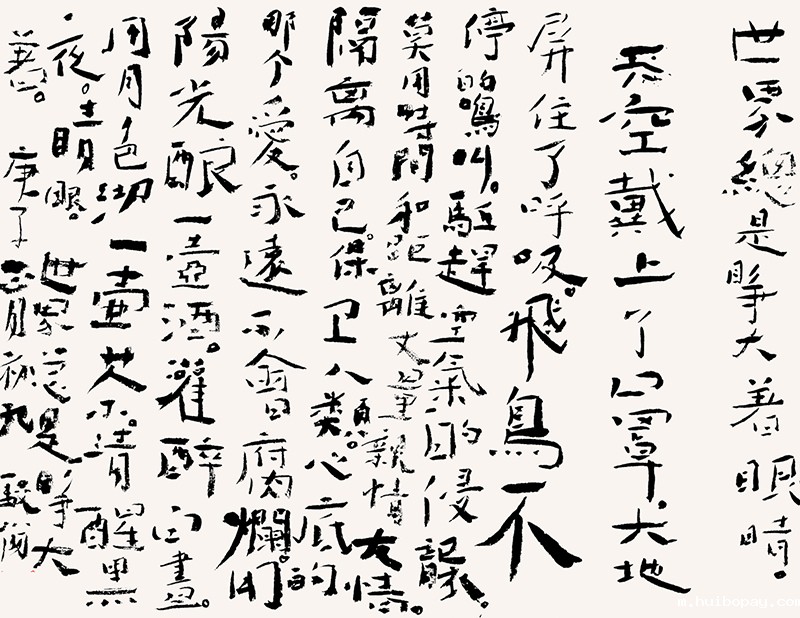 世界總是睜大著眼睛。
天空戴上了口罩大地
屏住了呼吸。飛鳥不
停的鳴叫。驅趕空氣的侵
莫用時間和距離丈量親情友情。
隔離自己。保卫人類。心底的
那个愛。永遠不會腐爛。用
陽光釀一壺酒。灌醉白晝。
用月色沏一壺茶。清醒黑
夜。睛眼。世界總是睜大
著。庚子
m.huibopay.com